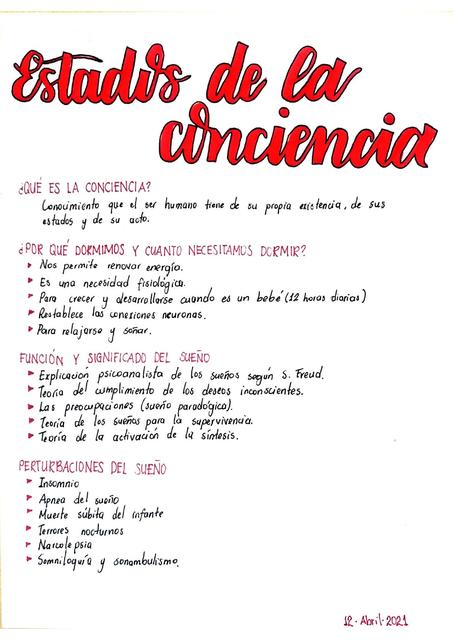 Estados de la
conciencia
¿QUÉ ES LA CONCIENCIA?
Conocimiento que el ser humano tiene de su propia existencia, de sus
estados y de su acto.
¿POR QUÉ DORMIMOS Y CUANTO NECESITAMOS DORMIR?
Nos permite renovar energía.
Es una necesidad fisiológica.
Para crecer y desarrollarse cuando es un bebé (12 horas diarias)
Restablece las conexiones neuronas.
Para relajarse y soñar.
FUNCIÓN Y SIGNIFICADO DEL SUEÑO
Explicación psicoanalista de los sueños según S. Freud.
Teoría del cumplimiento de los deseos inconscientes.
Las preocupaciones (sueño paradógico).
Teoría de los sueños para la supervivencia.
Teoría de la activación de la síntesis.
PERTURBACIONES DEL SUEÑO
Insomnio
Apnea del sueño
Muerte súbita del infante
Terrores nocturnos
Narcolepsia
Somniloquía y sonambulismo.
12·Abril·2021